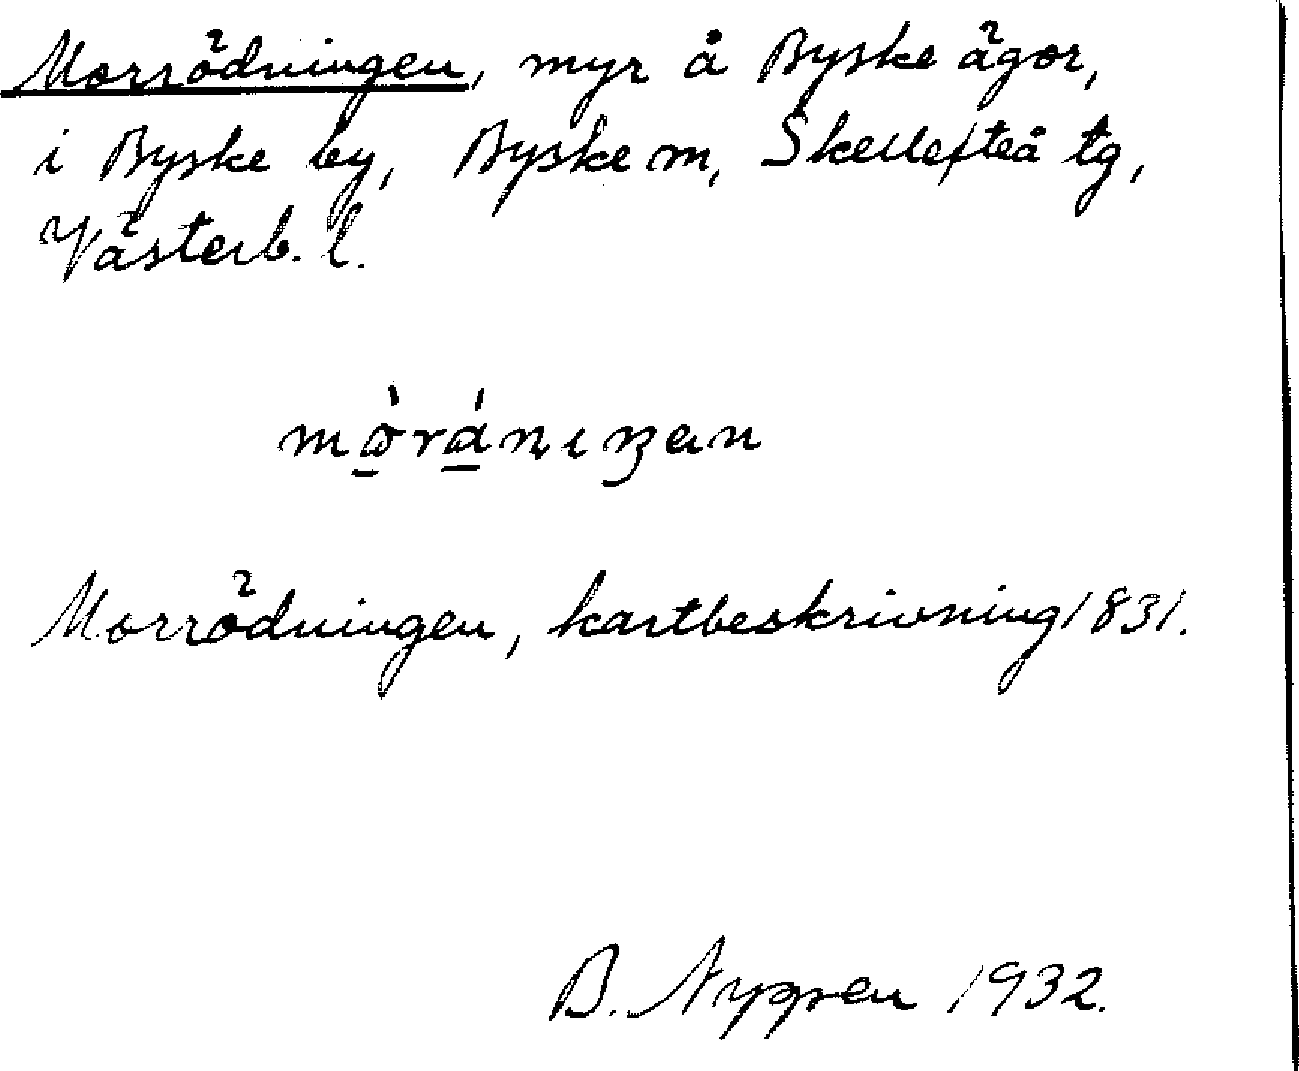 Morrödningen, myr å Byske ägor,
i Byske by, Byske m, Skellefteå tg,
Västerb. l.
Morrödningen, kartbeskrivning 1831.
B. Nygren 1932.